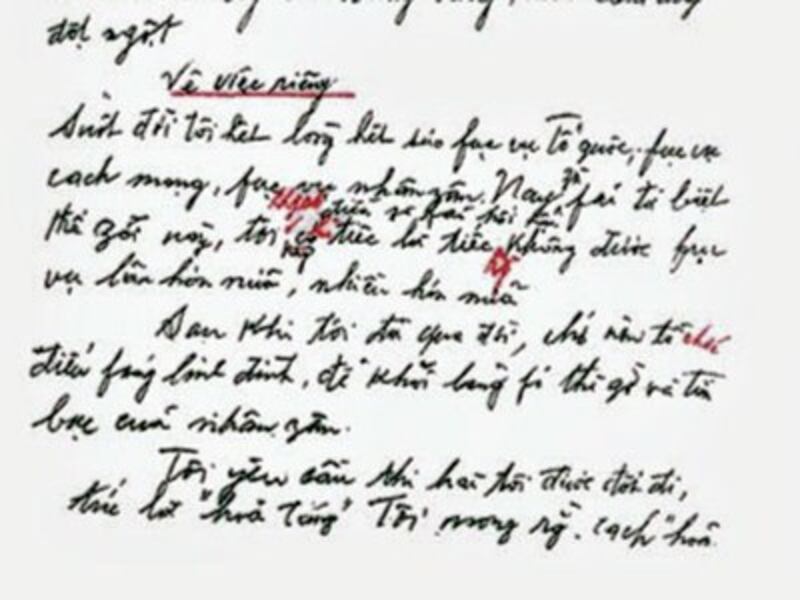 đột ngột
Về việc riêng
Suốt đời tôi hết lòng hết sức fục vụ Tổ quốc, fục vụ
cách mạng, fục vụ nhân zân. Nay zù fải từ biệt
thế zới này, tôi không có điều zì fải hối hận, chỉ
tiếc là tiếc rằng không được fục
vụ lâu hơn nữa, nhiều hơn nữa
Sau khi tôi đã qua đời, chớ nên tổ chức
điếu fúng linh đình, để khỏi lãng fí thì zờ và tiền
bạc của nhân zân.
Tôi yêu cầu thi hài tôi được đốt đi,
tức là "hoả táng" Tôi mong rằng cách "hoả